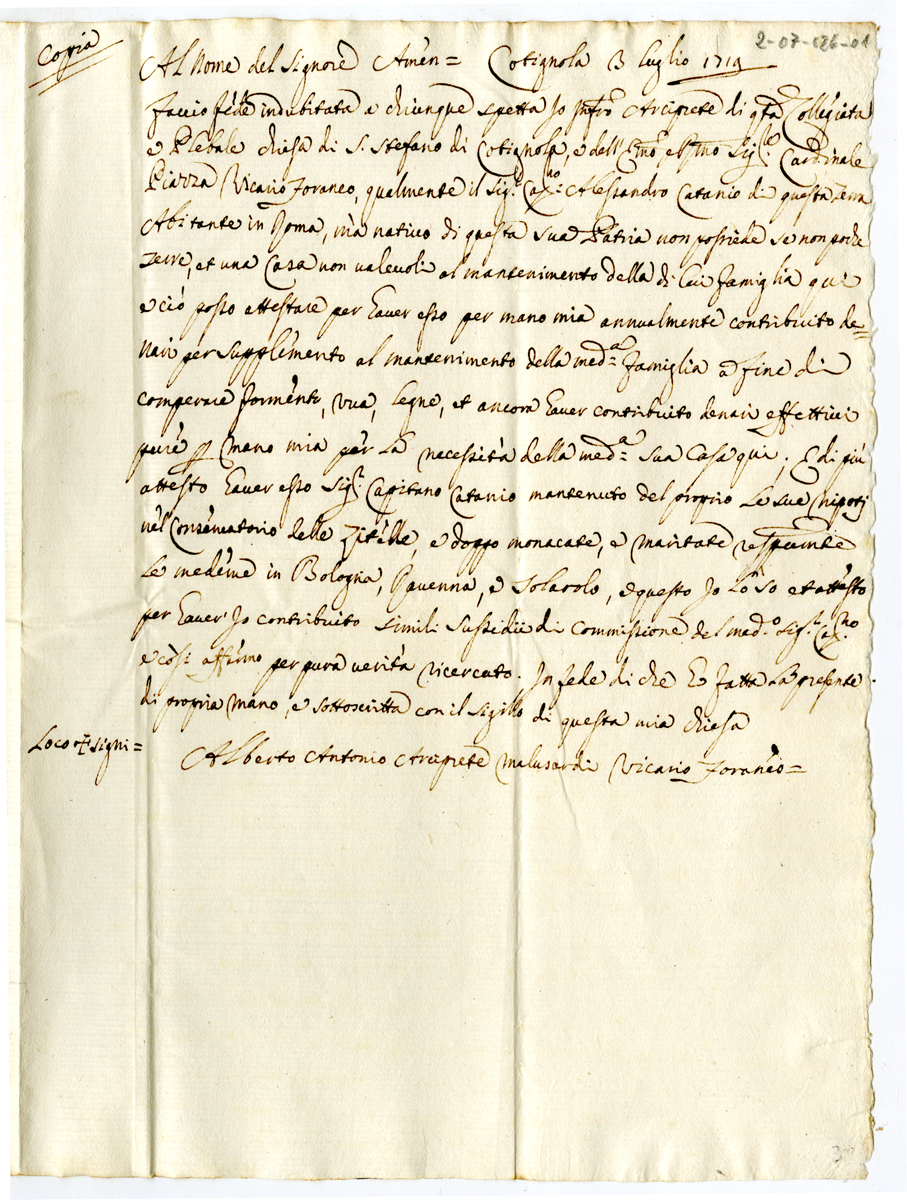 2-07-126-01
Copia
Al Nome del Signore Amen= Cotignola 3 Luglio 1719
Faccio fede indubitata a chiunque spetta Io infro Arciprete di qta Collegiata
e Plebale chiesa di S. Stefano di Cotignola, e dell' Emo e Rmo Sigr. Cardinale
Piazza Vicario Foraneo, qualmente il Sigr. Capno. Alessandro Catanio di questa Terra
Abitante in Roma, mà nativo di questa sua Patria non possiede se non poche
Terre, et una Casa non valevoli al mantenimento della di lui famiglia qui
e ciò posso attestare per haver esso per mano mia annualmente contribuito de=
nari per supplemento al mantenimento della meda= famiglia a fine di
comperare formenti, vua, legne, et ancora haver contribuito denari effettivi
pure p mano mia per la necessità della meda= sua Casa qui; E di più
attesto haver esso Sigr. Capitano Catanio mantenuto del proprio le sue nipoti
nel Conservatorio delle Zitelle, e doppo monacate, e maritate respvamte
le medeme in Bologna, Ravenna, e Solarolo, e questo Io lo so et attesto
per haver Io contribuito simili sussidii di commissione del medo. Sigr. Capno.
e così affermo per pura verità ricercato. In fede di che ho fatta la presente
di propria mano, e sottoscritta con il sigillo di questa mia chiesa
Loco + Signi=
Alberto Antonio Arciprete Malusardi Vicario Foraneo=